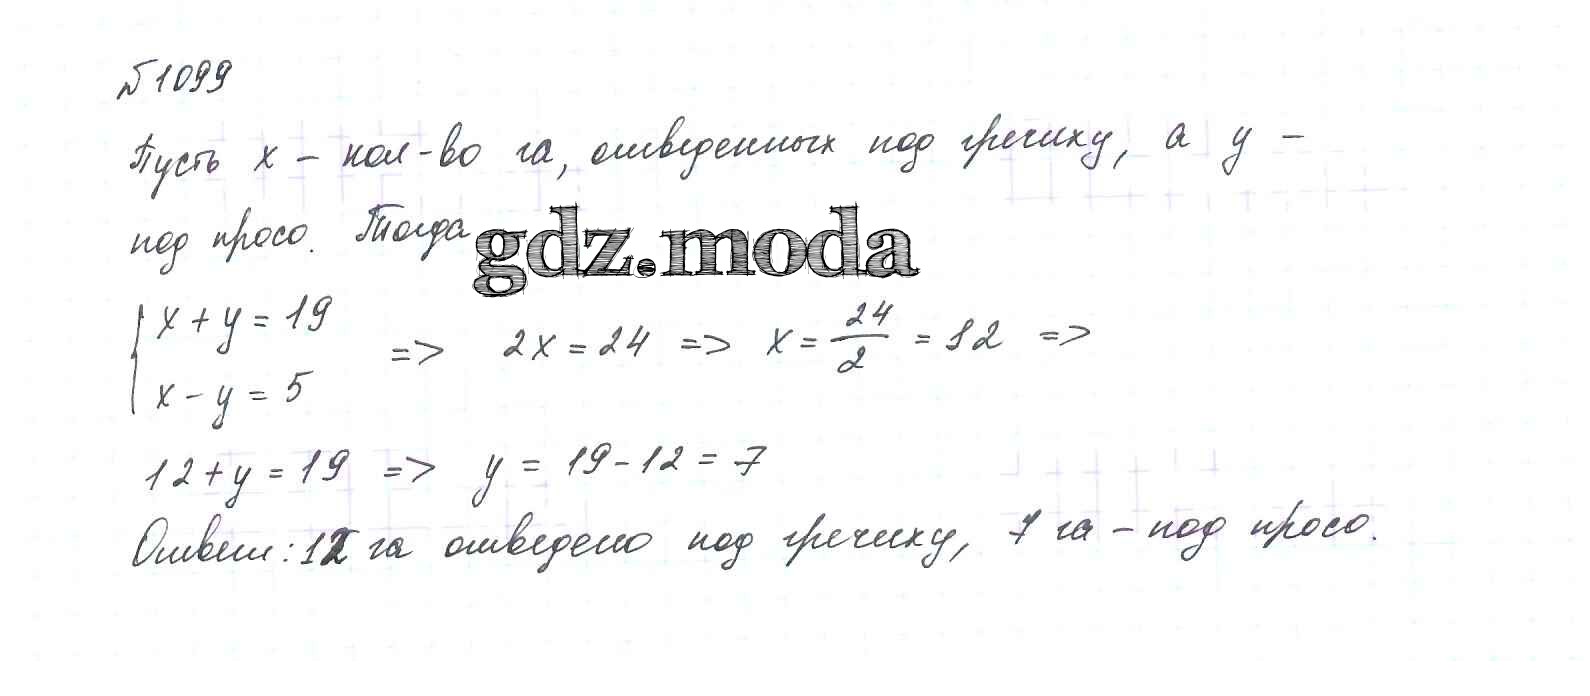 №1099
Пусть x – кол-во га, отведенных под гречиху, а y –
под просо. Тогда
gdz.moda
{ x + y = 19
x - y = 5
=> 2x = 24 => x = 24/2 = 12 =>
12 + y = 19 => y = 19 - 12 = 7
Ответ: 12 га отведено под гречиху, 7 га – под просо.